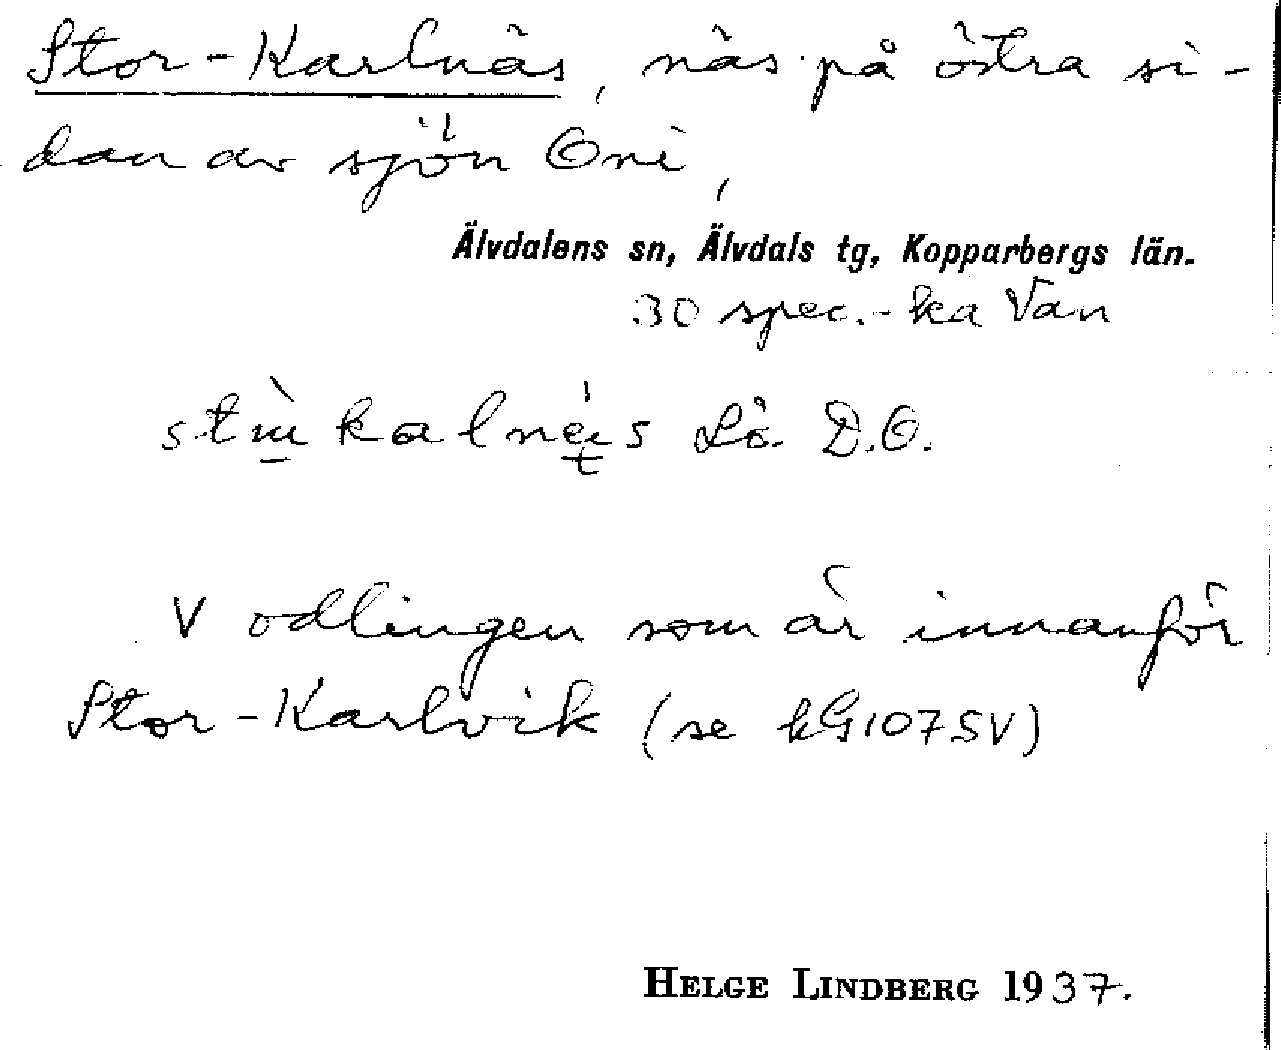 Stor-Karlnäs, näs på östra si-
dan av sjön Oni,
Älvdalens sn, Älvdals tg, Kopparbergs län.
30 spec.- ka Van
Lå. D.O.
V odlingen som är innanför
Stor-Karlvik (se kG107SV)
HELGE LINDBERG 1937.